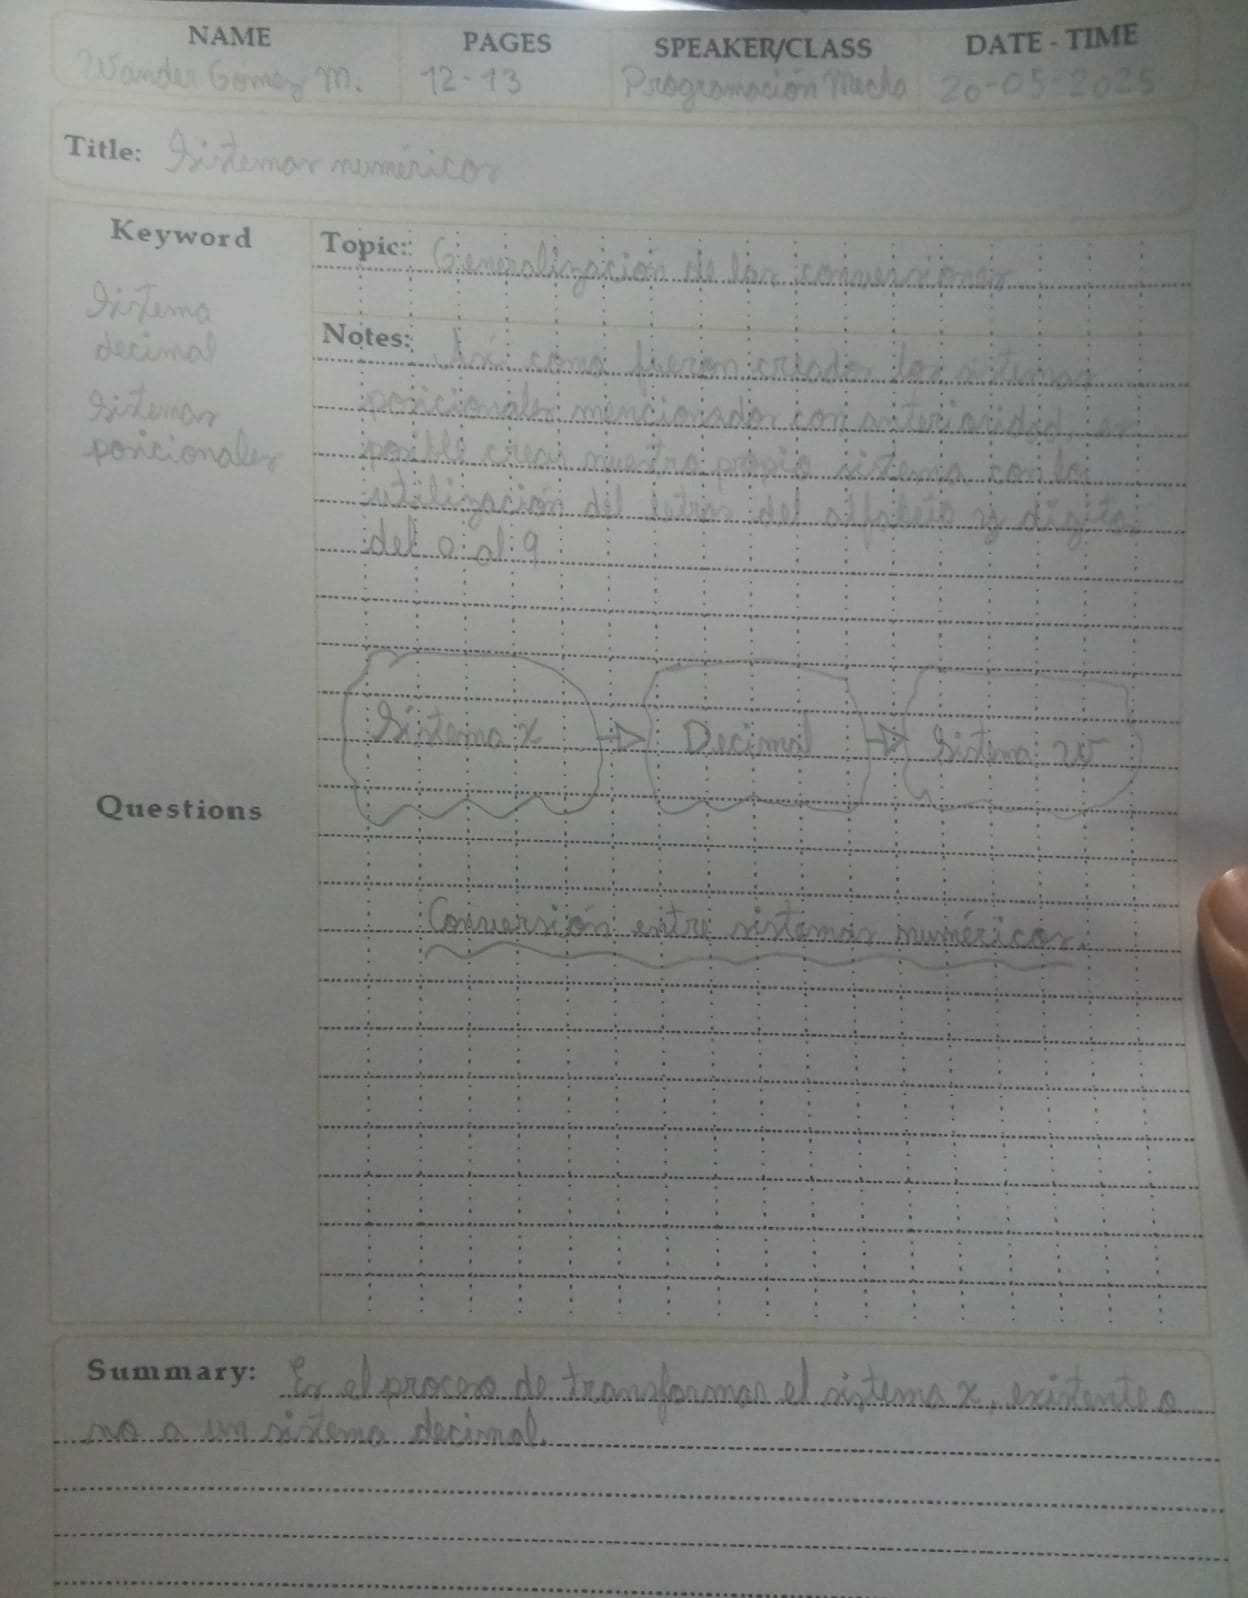 NAME PAGES SPEAKER/CLASS DATE - TIME
Wander Gomez M. 12-13 Programación Mecha 20-05-2025
Title: Sistemas numéricos
Keyword
Sistema
decimal
Sistemas
posicionales
Topic: Generalización de las conversiones
Notes: Así como fueron creados los sistemas
posicionales mencionados con anterioridad, es
posible crear nuestro propio sistema con la
utilización del letras del alfabeto y dígitos
del 0 al 9
Sistema x Decimal Sistema w
Questions
Conversión entre sistemas numéricos.
Summary: Es el proceso de transformar el sistema x, existente o
no a un sistema decimal.